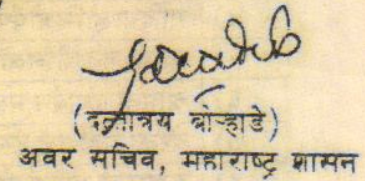 (दत्तात्रय बोऱ्हाडे)
अवर सचिव, महाराष्ट्र शासन